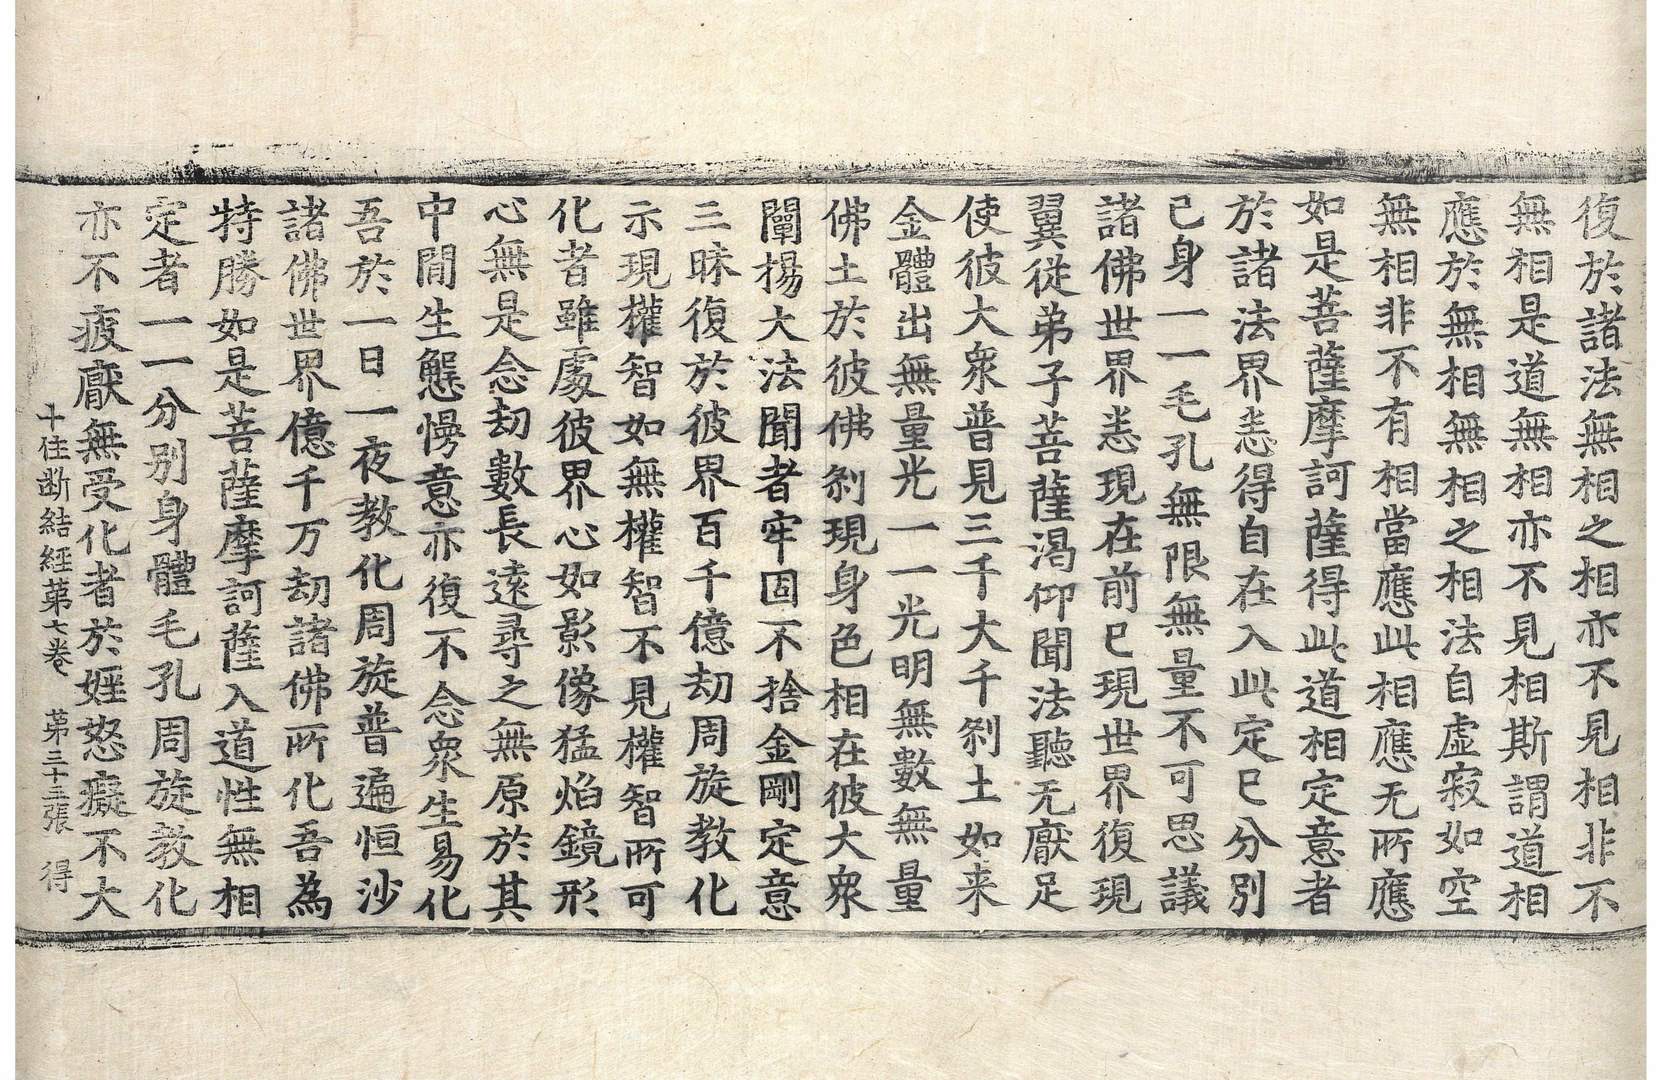 復於諸法無相之相亦不見相非不
無相是道無相亦不見相斯謂道相
應於無相無相之相法自虛寂如空
無相非不有相當應此相應无所應
如是菩薩摩訶薩得此道相定意者
於諸法界悉得自在入此定已分別
已身一一毛孔無限無量不可思議
諸佛世界悉現在前已現世界復現
翼從弟子菩薩渴仰聞法聽无猒足
使彼大衆普見三千大千刹土如来
金體出無量光一一光明無數無量
佛土於彼佛刹現身色相在彼大衆
闡揚大法聞者牢固不捨金剛定意
三昧復於彼界百千億劫周旋教化
示現權智如無權智不見權智所可
化者雖處彼界心如影像猛焰鏡形
心無是念劫數長遠尋之無原於其
中間生懈慢意亦復不念衆生易化
吾於一日一夜教化周旋普遍恒沙
諸佛世界億千万劫諸佛所化吾為
特勝如是菩薩摩訶薩入道性無相
定者一一分別身體毛孔周旋教化
亦不疲猒無受化者於婬怒癡不大
十住断結經第七卷 第三十五張 得